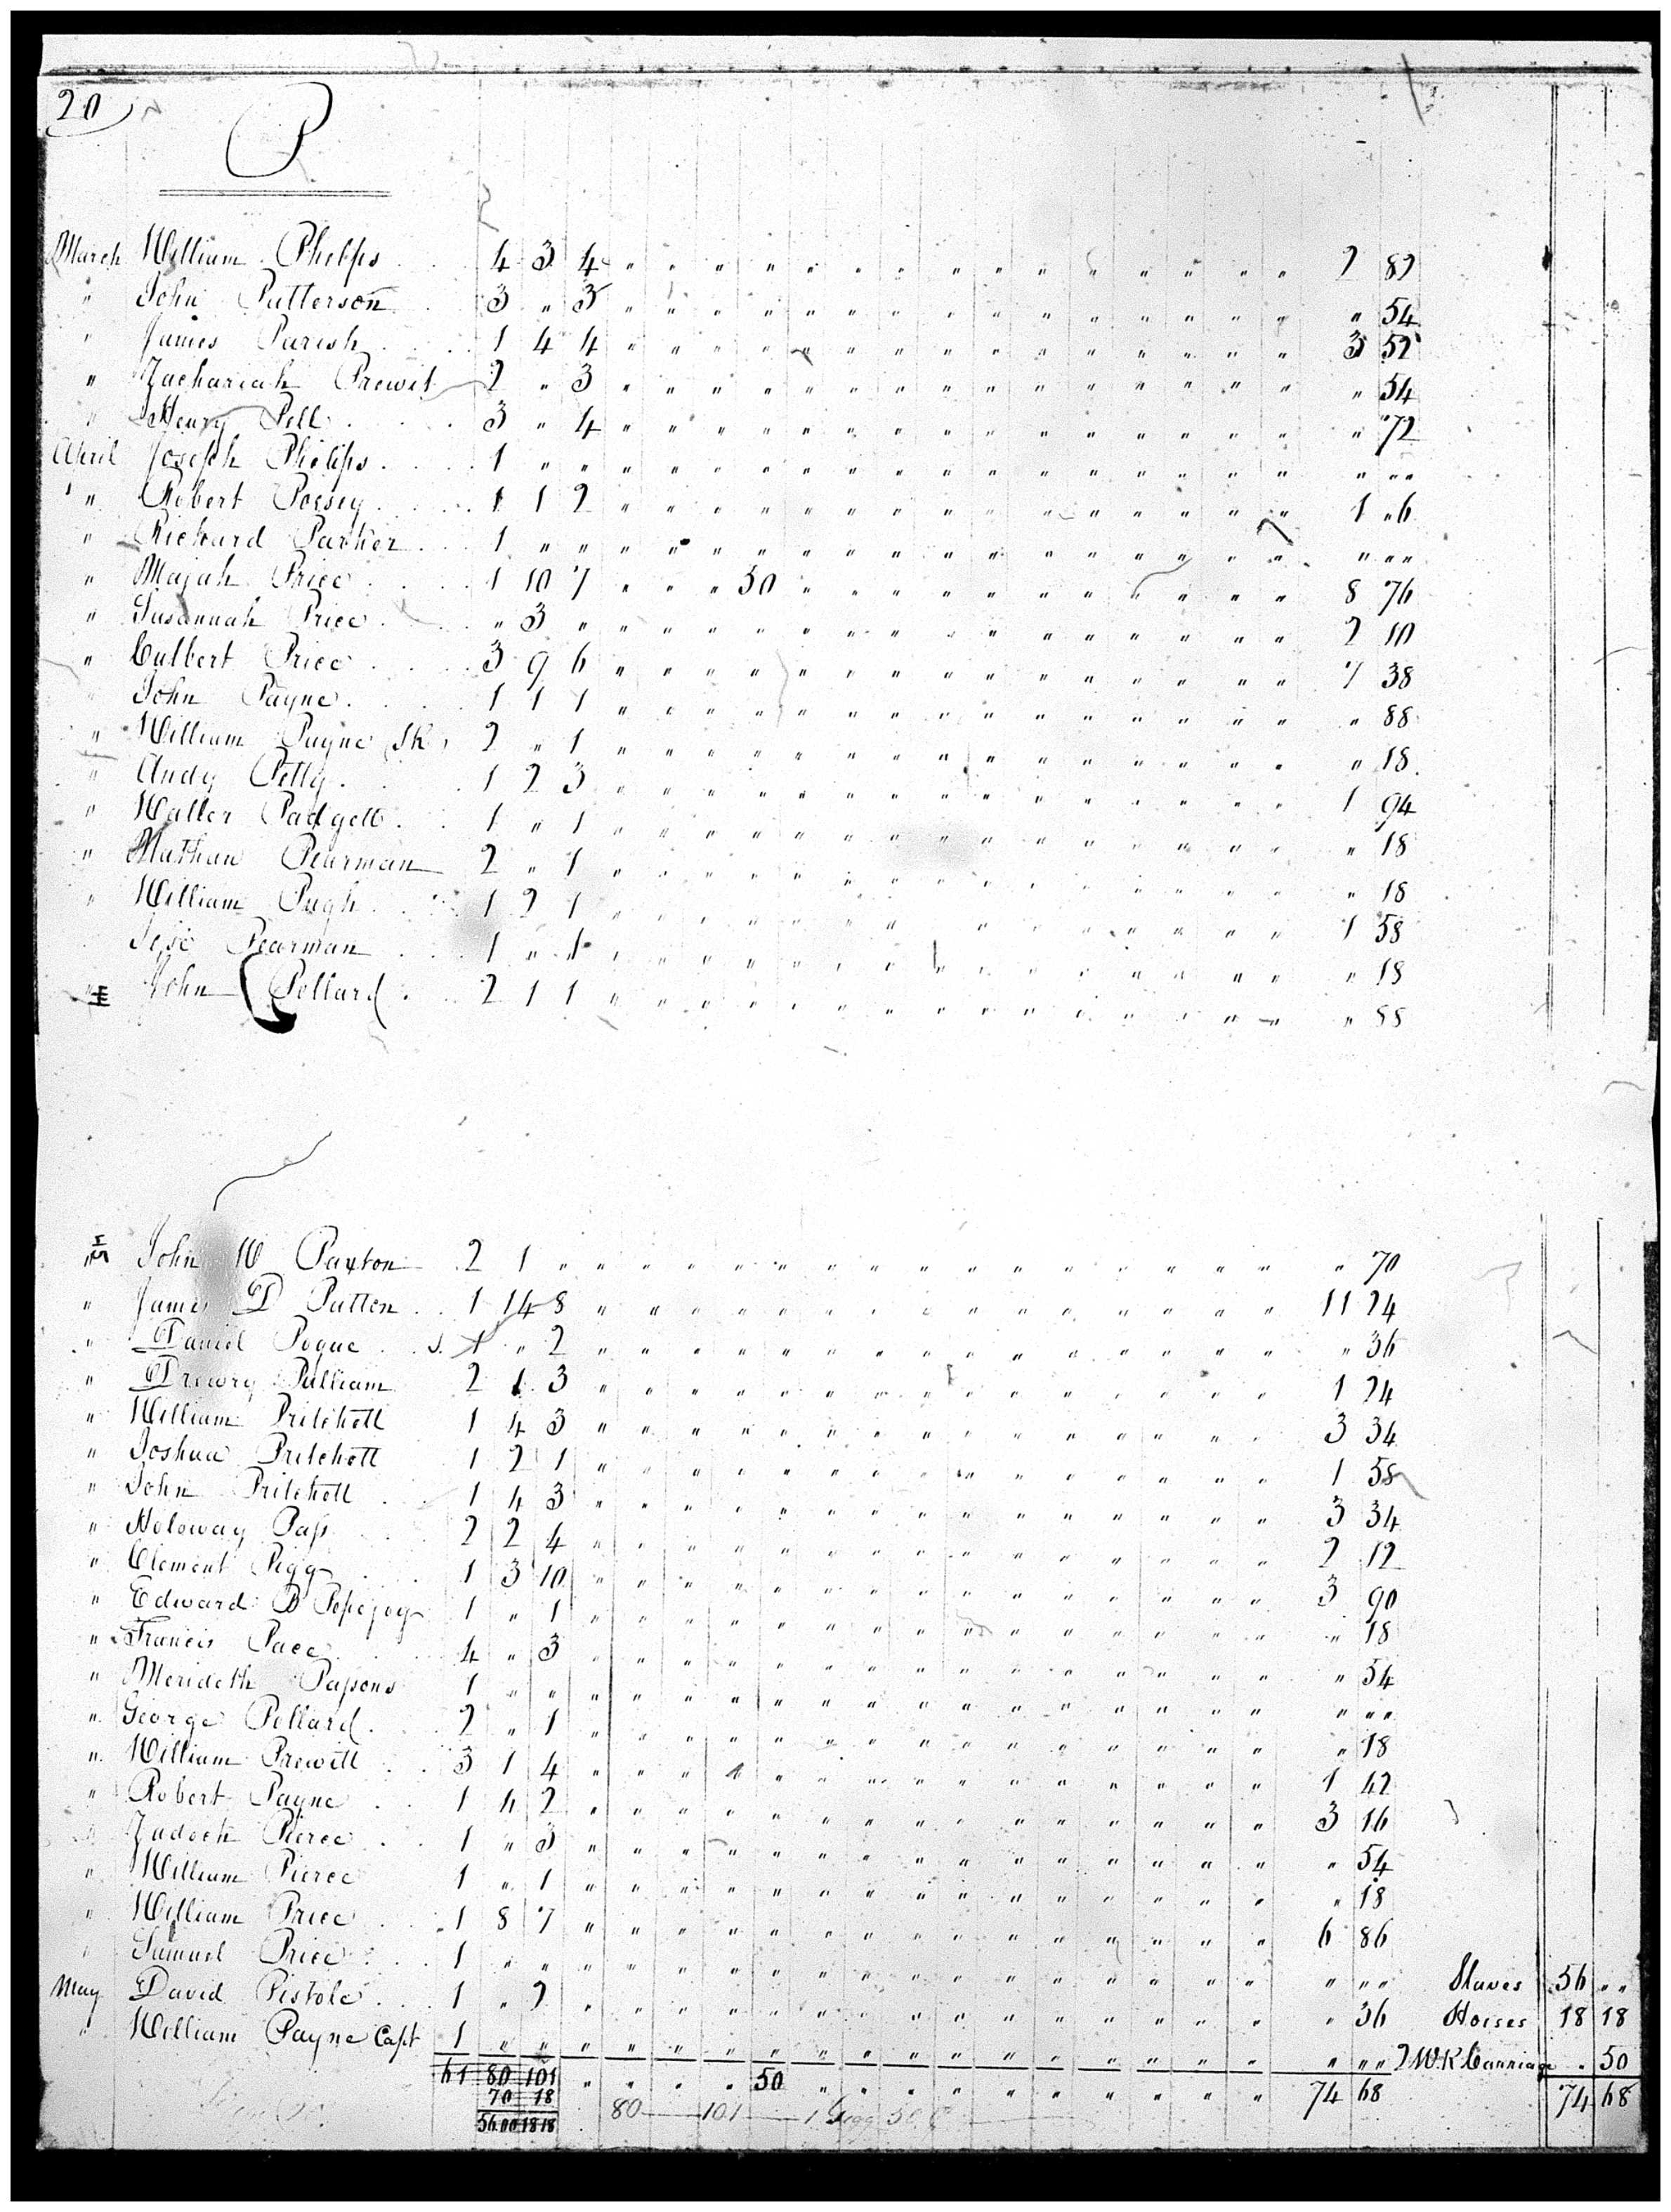 20
P
March William Phelps 4 3 4 " " " " " " " " " " " " " " " 2 82
" John Patterson 3 " 3 " " " " " " " " " " " " " " " " 54
" James Parish 1 4 4 " " " " " " " " " " " " " " " 3 52
" Zachariah Prewit 2 " 3 " " " " " " " " " " " " " " " " 54
" Henry Pell 3 " 4 " " " " " " " " " " " " " " " " 72
April Joseph Phelps 1 " " " " " " " " " " " " " " " " " " " "
" Robert Posey 1 1 2 " " " " " " " " " " " " " " " 1 " 6
" Richard Parker 1 " " " " " " " " " " " " " " " " " " " "
" Majah Price 1 10 7 " " " 50 " " " " " " " " " " " 8 76
" Susannah Price " 3 " " " " " " " " " " " " " " " " 2 10
" Culbert Price 3 9 6 " " " " " " " " " " " " " " " 7 38
" John Payne 1 1 1 " " " " " " " " " " " " " " " " 88
" William Payne SR 2 " 1 " " " " " " " " " " " " " " " " 18
" Andy Petty 1 2 3 " " " " " " " " " " " " " " " 1 94
" Waller Padgett 1 " 1 " " " " " " " " " " " " " " " " 18
" Nathan Pearman 2 " 1 " " " " " " " " " " " " " " " " 18
" William Pugh 1 2 1 " " " " " " " " " " " " " " " 1 58
Jese Pearman 1 " 1 " " " " " " " " " " " " " " " " 18
" John Pollard 2 1 1 " " " " " " " " " " " " " " " " 88
" John W Paxton 2 1 " " " " " " " " " " " " " " " " " 70
" James D Patton 1 14 8 " " " " " " " " " " " " " " " 11 24
" Daniel Pogue S. 1 " 2 " " " " " " " " " " " " " " " " 36
" Drewry Pulliam 2 1 3 " " " " " " " " " " " " " " " 1 24
" William Pritchett 1 4 3 " " " " " " " " " " " " " " " 3 34
" Joshua Pritchett 1 2 1 " " " " " " " " " " " " " " " 1 58
" John Pritchett 1 4 3 " " " " " " " " " " " " " " " 3 34
" Holoway Pass 2 2 4 " " " " " " " " " " " " " " " 2 12
" Clement Pigg 1 3 10 " " " " " " " " " " " " " " " 3 90
" Edward B Popejoy 1 " 1 " " " " " " " " " " " " " " " " 18
" Francis Pace 4 " 3 " " " " " " " " " " " " " " " " 54
" Merideth Passons 1 " " " " " " " " " " " " " " " " " " " "
" George Pollard 2 " 1 " " " " " " " " " " " " " " " " 18
" William Prewitt 3 1 4 " " " " " " " " " " " " " " " 1 42
" Robert Payne 1 4 2 " " " " " " " " " " " " " " " 3 16
" Zadock Pierce 1 " 3 " " " " " " " " " " " " " " " " 54
" William Pierce 1 " 1 " " " " " " " " " " " " " " " " 18
" William Price 1 8 7 " " " " " " " " " " " " " " " 6 86
" Samuel Price 1 " " " " " " " " " " " " " " " " " " " " Slaves 56 " "
May David Pistole 1 " 2 " " " " " " " " " " " " " " " " 36 Horses 18 18
" William Payne Capt 1 " " " " " " " " " " " " " " " " " " " " 2 W.R Carriage . 50
61 80 101 " " " " 50 " " " " " " " " " " " 74 68 74 68
70 18
56.00 18 18 80 101 1 Gigg 50 C